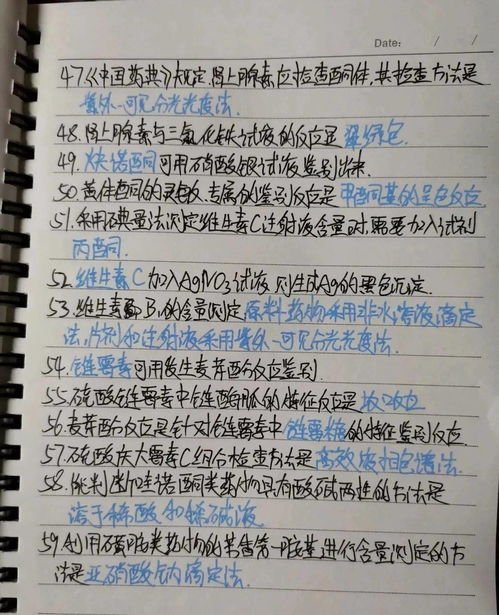 Date: / /
47.《中国药典》规定,肾上腺素应检查酮体,其检查方法是
紫外-可见分光光度法.
48. 肾上腺素与三氯化铁试液的反应是 翠绿色
49. 炔诺酮可用硝酸银试液鉴别出来.
50. 黄体酮的灵敏、专属的鉴别反应是 甲酮基的呈色反应
51. 采用碘量法测定维生素C注射液含量时,需要加入试剂
丙酮.
52. 维生素C加入AgNO3试液则生成Ag的黑色沉淀.
53. 维生素B1的含量测定,原料药物采用非水溶液滴定
法,片剂和注射液采用紫外-可见分光光度法.
54. 链霉素可用发生麦芽酚反应鉴别.
55. 硫酸链霉素中链霉胍的特征反应是坂口反应
56. 麦芽酚反应是针对链霉素中链霉糖的特征鉴别反应.
57. 硫酸庆大霉素C组分检查方法是高效液相色谱法.
58. 批判诺酮类药物具有酸碱两性的方法是
溶于稀酸和稀碱液.
59. 利用磺胺类药物的芳香第一胺基进行含量测定的方
法是亚硝酸钠滴定法.